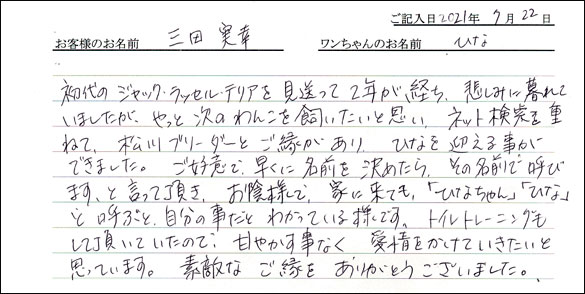 ご記入日2021年 9月 22日
お客様のお名前 三田 実幸 ワンちゃんのお名前 ひな
初代の ジャック・ラッセル・テリアを 見送って 2年が、経ち、悲しみに暮れて
いましたが、やっと 次の わんこを 飼いたいと思い、ネット検索を重
ねて、松川 ブリーダーと ご縁があり、ひなを 迎える事が
できました。ご好意で、早くに 名前を 決めたら、その名前で 呼び
ます、と 言って頂き、お陰様で、家に来ても、「ひなちゃん」「ひな」
と 呼ぶと、自分の事だと わかっている様です。トイレトレーニングも
して頂いていたので、甘やかす事なく 愛情をかけていきたいと
思っています。素敵な ご縁を ありがとうございました。